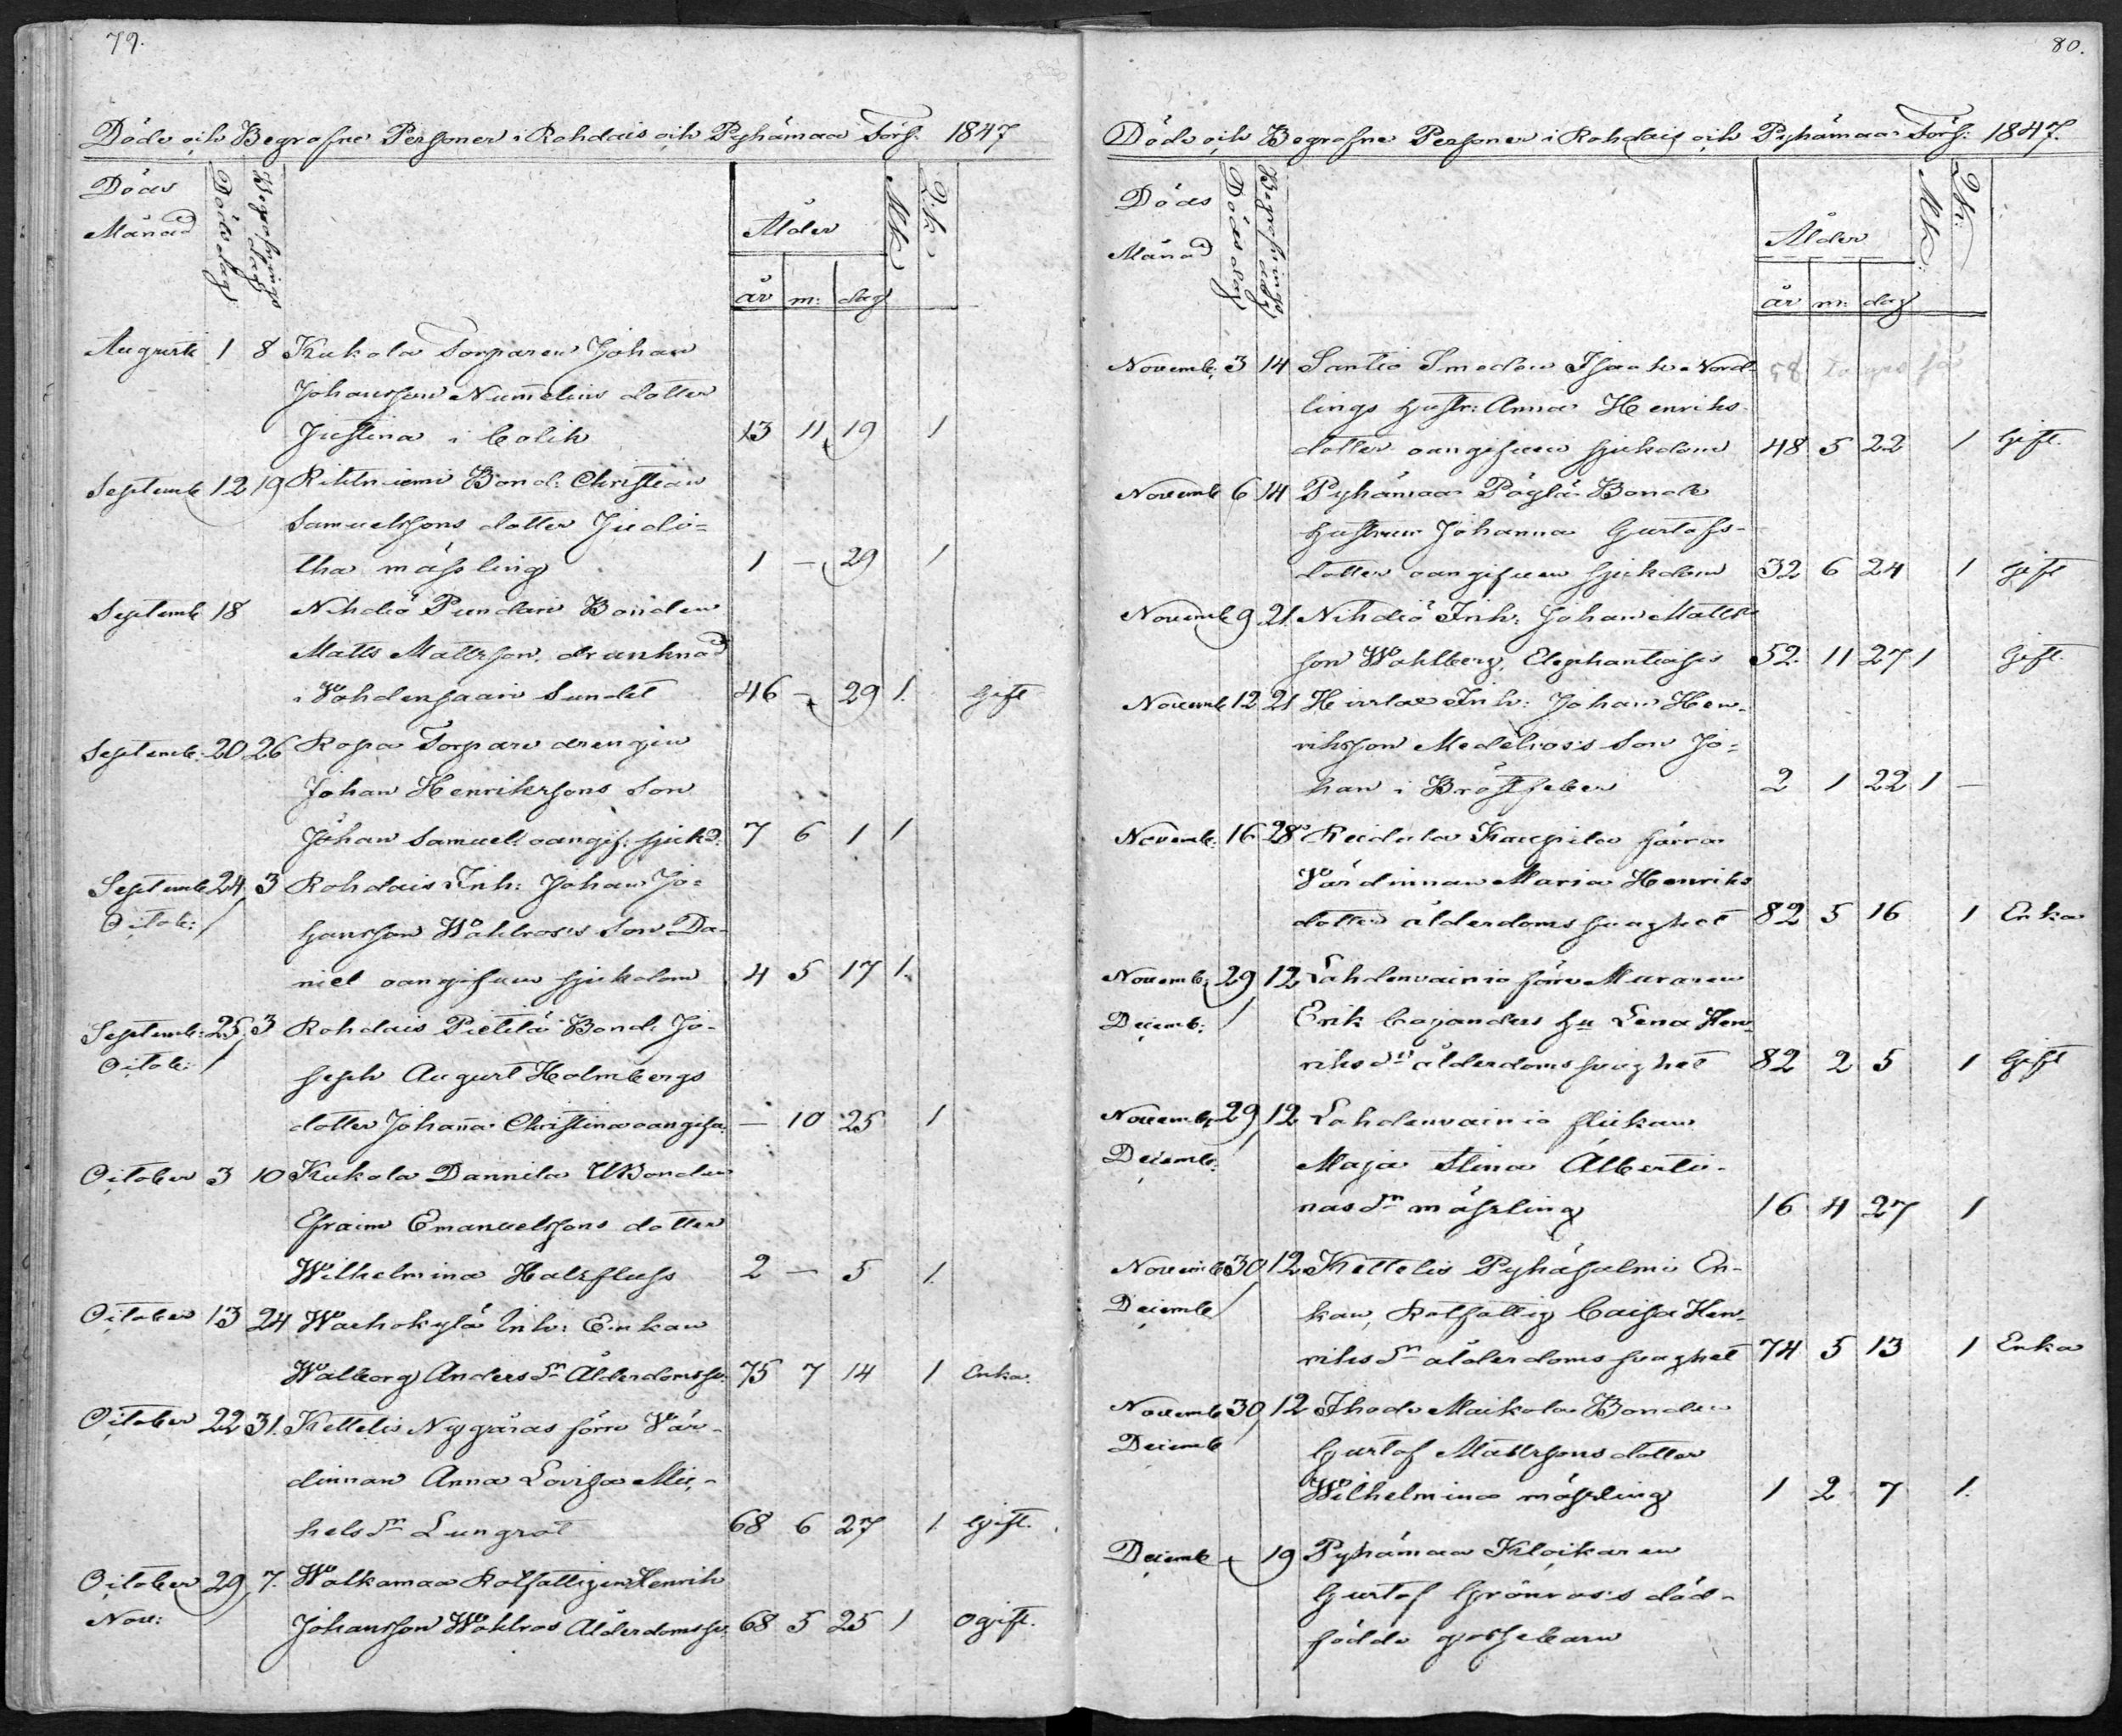 79.
Döde och Begrafne Personer i Rohdais och Pyhämaa Förs: 1847
Döds Månad Döds dag Begrafnings dag Ålder Mk Qk
år m: dag
Augusti 1 8 Kukola Torparen Johan
Johansson Numelins dotter
Justina i Colik 13 11 19 1
Septemb 12 19 Rihtniemi Bond: Christian
Samuelssons dotter Judi=
tha mässling 1 – 29 1
Septemb 18 Nihdiö Pundari Bonden
Matts Mattsson, drunknad
i Vohdensaari Sundet 46 – 29 1. Gift
Septemb: 20 26 Ropa Torpare drengen
Johan Henrikssons Son
Johan Samuel: oangif: sjukd: 7 6 1 1
Septemb 24 3 Rohdais Inh: Johan Jo=
Octob: / hansson Wahlros's Son Da-
niel oangifven sjukdom 4 5 17 1.
Septemb: 25 3 Rohdais Pietilä Bond: Jo-
Octob: / seph August Holmbergs
dotter Johana Christina oangifv: – 10 25 1
October 3 10 Kukola Dannila UBonden
Efraim Emanuelssons dotter
Wilhelmina Halsfluss 2 – 5 1.
October 13 24 Inh: Enkan
Walborg Anders dr Ålderdomssv: 75 7 14 1 Enka.
October 22 31. Kettelis Nygåras förre Vär-
dinnan Anna Lovisa Mic-
hels dr Lungsot 68 6 27 1. Gift.
October 29 7. Walkamaa Rotfattigen Henrik
Nov: Johansson Wahlros Ålderdomssv: 68 5 25 1 Ogift.
80.
Döde och Begrafne Personer i Rohdais och Pyhämaa Förs: 1847.
Döds Månad Döds dag Begrafnings dag Ålder Mk: Qk:
år m: dag
Novemb: 3 14 Santio Smeden Isaak Nord-
lings hustr: Anna Henriks-
dotter oangifven sjukdom 48 5 22 1 Gift.
Novemb 6 14 Pyhämaa Pöylä Bonde
hustrun Johanna Gustafs-
dotter oangifven sjukdom 32 6 24 1 Gift
Novemb 9 21. Nihdiö Inh: Johan Matts
son Wahlberg, Elephantiasis 52. 11 27 1 Gift.
Novemb 12 21 Inh: Johan Hen-
riksson Medelros's Son Jo=
han i Bröstfeber 2 1 22 1 –
Novemb: 16 28 Kaupila förra
Värdinnan Maria Henriks
dotter ålderdoms svaghet 82 5 16 1 Enka
Novemb: 29 12 Lahdenvainio förre Muraren
Decemb: / Erik Cajanders hu Lena Hen-
riks dr ålderdoms svaghet 82 2 5 1 Gift
Novemb: 29 12 Lahdenvainio flickan
Decemb: / Maja Stina Alberti-
nas dr mässling 16 4 27 1
Novemb 30 12 Kettelis Pyhäsalmi En-
Decemb / kan, Rotfattig Caisa Hen-
riks dr ålderdoms svaghet 74 5 13 1 Enka
Novemb 30 12 Ihode Maikola Bonden
Decemb / Gustaf Mattssons dotter
Wilhelmina mässling 1 2 7 1.
Decemb – 19 Pyhämaa Klockaren
Gustaf Grönros's död-
födde gossebarn